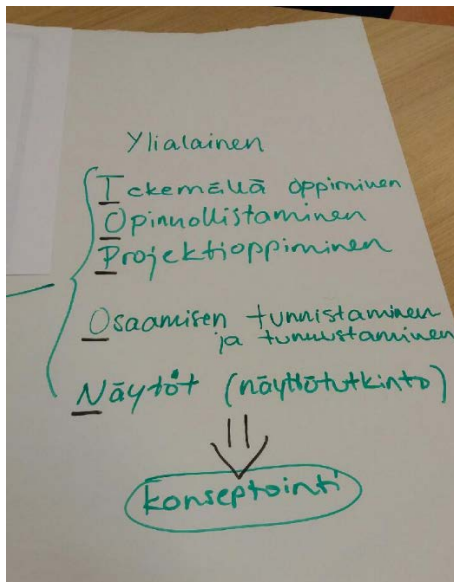 Ylialainen
Tekemällä oppiminen
Opinnollistaminen
Projektioppiminen
Osaamisen tunnistaminen
ja tunnustaminen
Näytöt (näyttötutkinto)
Konseptointi